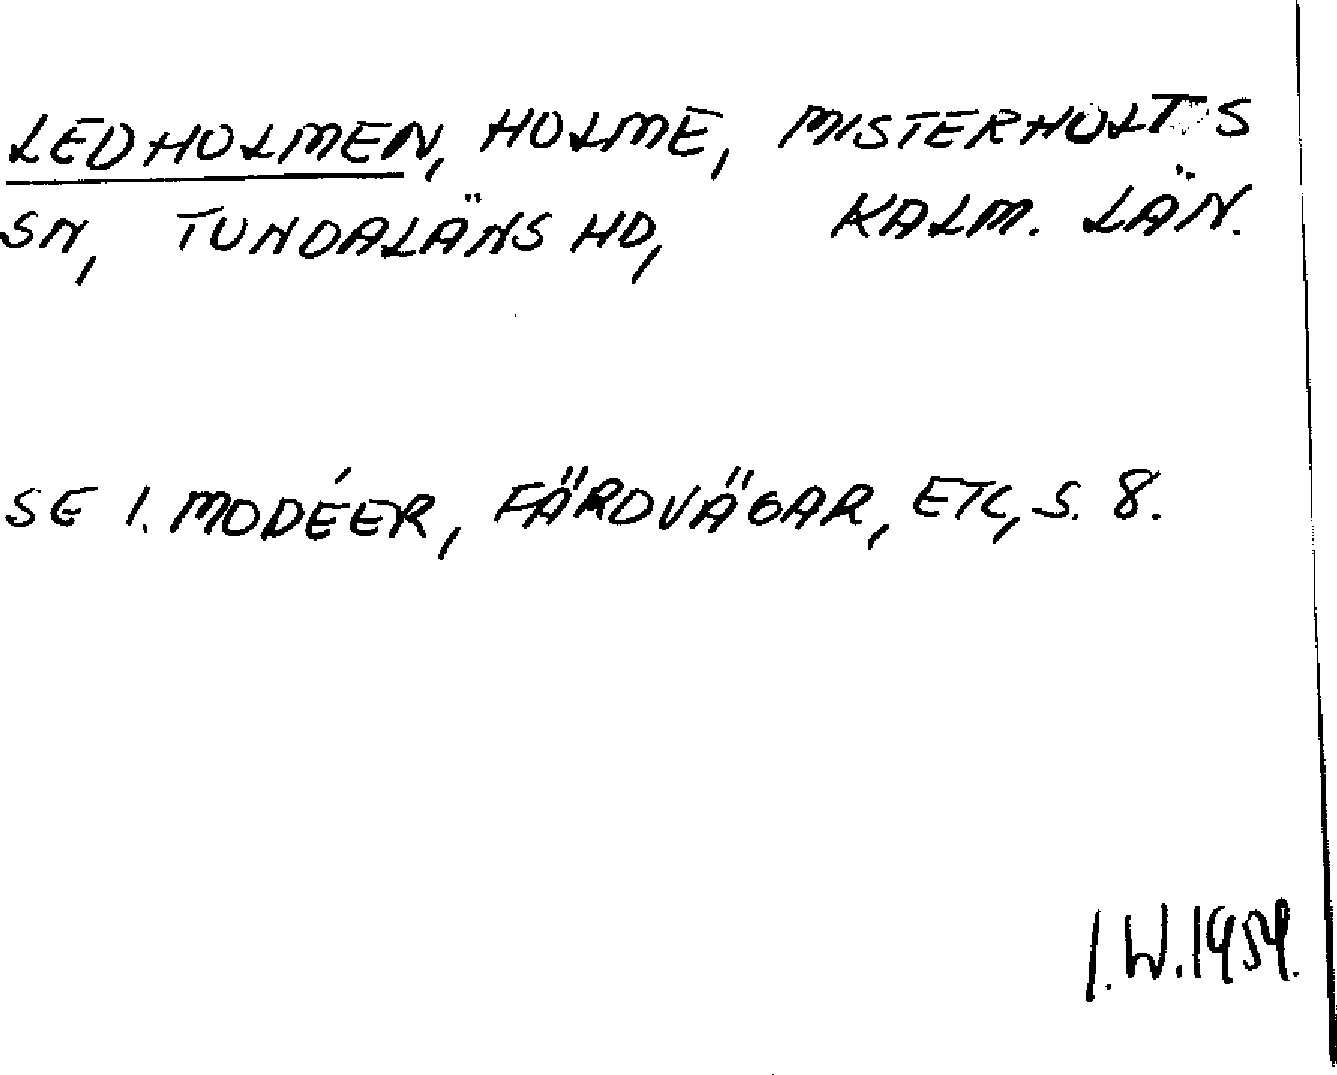 LEDHOLMEN, HOLME, MISTERHULTS
SN, TUNDALÄNS HD, KALM. LÄN.
SE I. MODÉER, FÄRDVÄGAR, ETC, S. 8.
I. W. 1959.